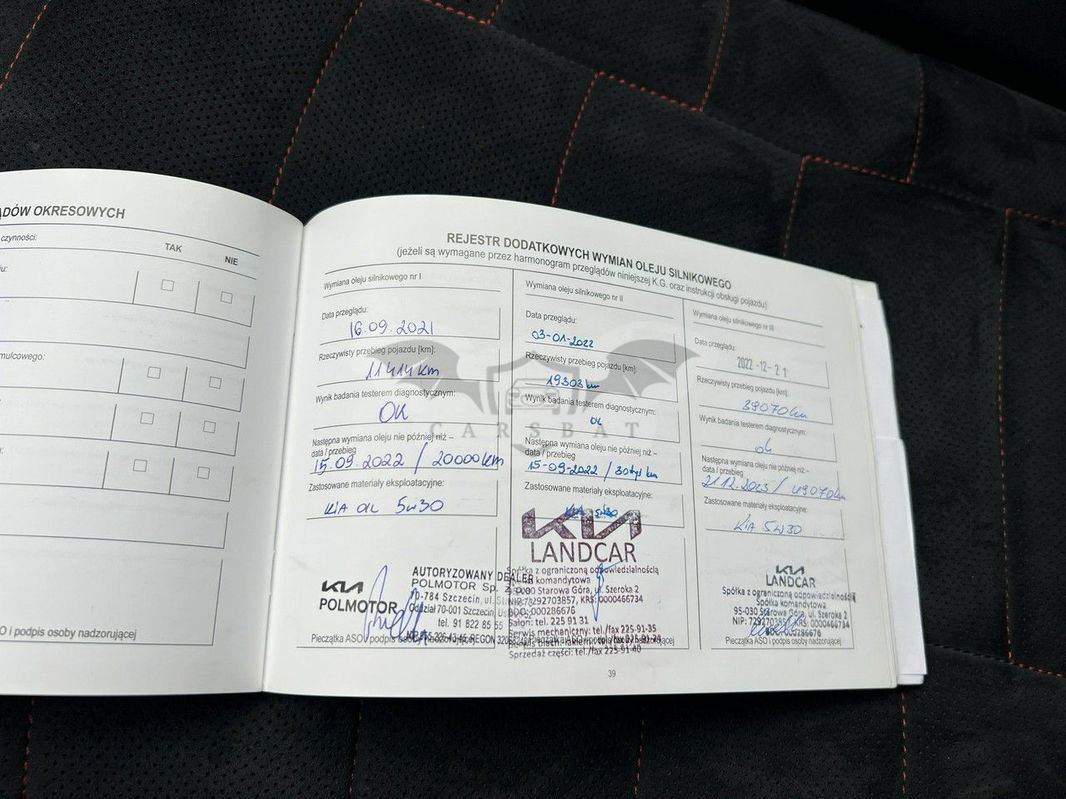 ĄDÓW OKRESOWYCH
czynności:
TAK
NIE
mulcowego:
O i podpis osoby nadzorującej
REJESTR DODATKOWYCH WYMIAN OLEJU SILNIKOWEGO
(jeżeli są wymagane przez harmonogram przeglądów niniejszej K.G. oraz instrukcji obsługi pojazdu)
Wymiana oleju silnikowego nr I
Data przeglądu:
16.09.2021
Rzeczywisty przebieg pojazdu [km]:
11414 km
Wynik badania testerem diagnostycznym:
OK
Następna wymiana oleju nie później niż –
data / przebieg
15.09.2022 / 20000 km
Zastosowane materiały eksploatacyjne:
KIA OIL 5W30
KIA
POLMOTOR
AUTORYZOWANY DEALER
POLMOTOR Sp. z o.o.
70-784 Szczecin, ul.
Oddział 70-001 Szczecin,
tel. 91 822 85 55
Pieczątka ASO i podpis
Wymiana oleju silnikowego nr II
Data przeglądu:
03-01-2022
Rzeczywisty przebieg pojazdu [km]:
19303 km
Wynik badania testerem diagnostycznym:
ok
Następna wymiana oleju nie później niż –
data / przebieg
15-09-2022 / 30 tyś km
Zastosowane materiały eksploatacyjne:
KIA 5W30
KIA
LANDCAR
Spółka z ograniczoną odpowiedzialnością
komandytowa
Starowa Góra, ul. Szeroka 2
NIP: 7292703857, KRS: 0000466734
BDO: 000286676
Salon: tel. 225 91 31
Serwis mechaniczny: tel./fax 225-91-35
Sprzedaż części: tel./fax 225-91-40
Wymiana oleju silnikowego nr III
Data przeglądu:
2022 -12- 21
Rzeczywisty przebieg pojazdu [km]:
39070 km
Wynik badania testerem diagnostycznym:
ok
Następna wymiana oleju nie później niż –
data / przebieg
21.12.2023 / 49070 km
Zastosowane materiały eksploatacyjne:
KIA 5W30
KIA
LANDCAR
Spółka z ograniczoną odpowiedzialnością
Spółka komandytowa
95-030 Starowa Góra, ul. Szeroka 2
NIP: 7292703857, KRS: 0000466734
BDO: 000286676
Pieczątka ASO i podpis osoby nadzorującej
39
CARSBAT